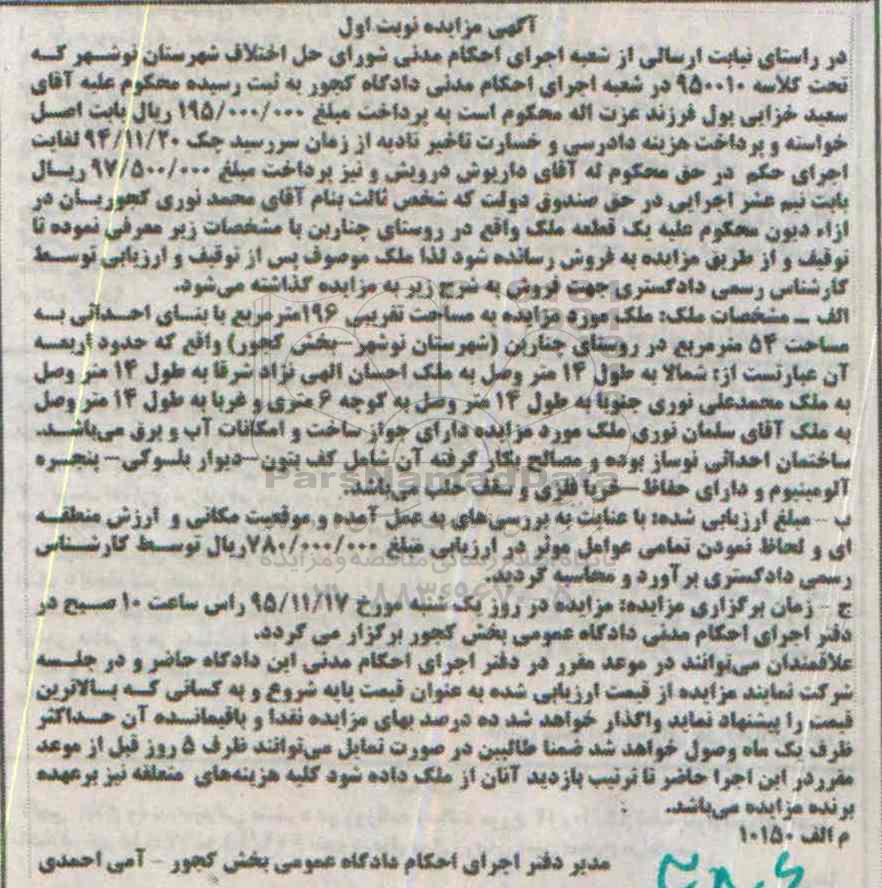 آگهی مزایده نوبت اول
در راستای نیابت ارسالی از شعبه اجرای احکام مدنی شورای حل اختلاف شهرستان نوشهر که
تحت کلاسه ۹۵۰۰۱۰ در شعبه اجرای احکام مدنی دادگاه کجور به ثبت رسیده محکوم علیه آقای
سعید خزایی پول فرزند عزت اله محکوم است به پرداخت مبلغ ۱۹۵/۰۰۰/۰۰۰ ریال بابت اصل
خواسته و پرداخت هزینه دادرسی و خسارت تاخیر تادیه از زمان سررسید چک ۹۴/۱۱/۲۰ لغایت
اجرای حکم در حق محکوم له آقای داریوش درویش و نیز پرداخت مبلغ ۹۷/۵۰۰/۰۰۰ ریال
بابت نیم عشر اجرایی در حق صندوق دولت که شخص ثالث بنام آقای محمد نوری کجوریان در
ازاء دیون محکوم علیه یک قطعه ملک واقع در روستای چنارین با مشخصات زیر معرفی نموده تا
توقیف و از طریق مزایده به فروش رسانده شود لذا ملک موصوف پس از توقیف و ارزیابی توسط
کارشناس رسمی دادگستری جهت فروش به شرح زیر به مزایده گذاشته می‌شود.
الف ــ مشخصات ملک: ملک مورد مزایده به مساحت تقریبی ۱۹۶مترمربع با بنای احداثی به
مساحت ۵۴ مترمربع در روستای چنارین (شهرستان نوشهر–بخش کجور) واقع که حدود اربعه
آن عبارتست از: شمالا به طول ۱۴ متر وصل به ملک احسان الهی نژاد شرقا به طول ۱۴ متر وصل
به ملک محمدعلی نوری جنوبا به طول ۱۴ متر وصل به کوچه ۶ متری و غربا به طول ۱۴ متر وصل
به ملک آقای سلمان نوری ملک مورد مزایده دارای جواز ساخت و امکانات آب و برق می‌باشد.
ساختمان احداثی نوساز بوده و مصالح بکار گرفته آن شامل کف بتون–دیوار بلوکی– پنجره
آلومینیوم و دارای حفاظ–خرپا فلزی و سقف حلب می‌باشد.
ب – مبلغ ارزیابی شده: با عنایت به بررسی‌های به عمل آمده و موقعیت مکانی و ارزش منطقه
ای و لحاظ نمودن تمامی عوامل موثر در ارزیابی مبلغ ۷۸۰/۰۰۰/۰۰۰ریال توسط کارشناس
رسمی دادگستری برآورد و محاسبه گردید.
ج – زمان برگزاری مزایده: مزایده در روز یک شنبه مورخ ۹۵/۱۱/۱۷ راس ساعت ۱۰ صبح در
دفتر اجرای احکام مدنی دادگاه عمومی بخش کجور برگزار می گردد.
علاقمندان می‌توانند در موعد مقرر در دفتر اجرای احکام مدنی این دادگاه حاضر و در جلسه
شرکت نمایند مزایده از قیمت ارزیابی شده به عنوان قیمت پایه شروع و به کسانی که بالاترین
قیمت را پیشنهاد نماید واگذار خواهد شد ده درصد بهای مزایده نقدا و باقیمانده آن حداکثر
ظرف یک ماه وصول خواهد شد ضمنا طالبین در صورت تمایل می‌توانند ظرف ۵ روز قبل از موعد
مقرردر این اجرا حاضر تا ترتیب بازدید آنان از ملک داده شود کلیه هزینه‌های متعلقه نیز برعهده
برنده مزایده می‌باشد.
م الف ۱۰۱۵۰
مدیر دفتر اجرای احکام دادگاه عمومی بخش کجور – آمی احمدی
ParsNamadData
پایگاه اطلاع رسانی مناقصه و مزایده